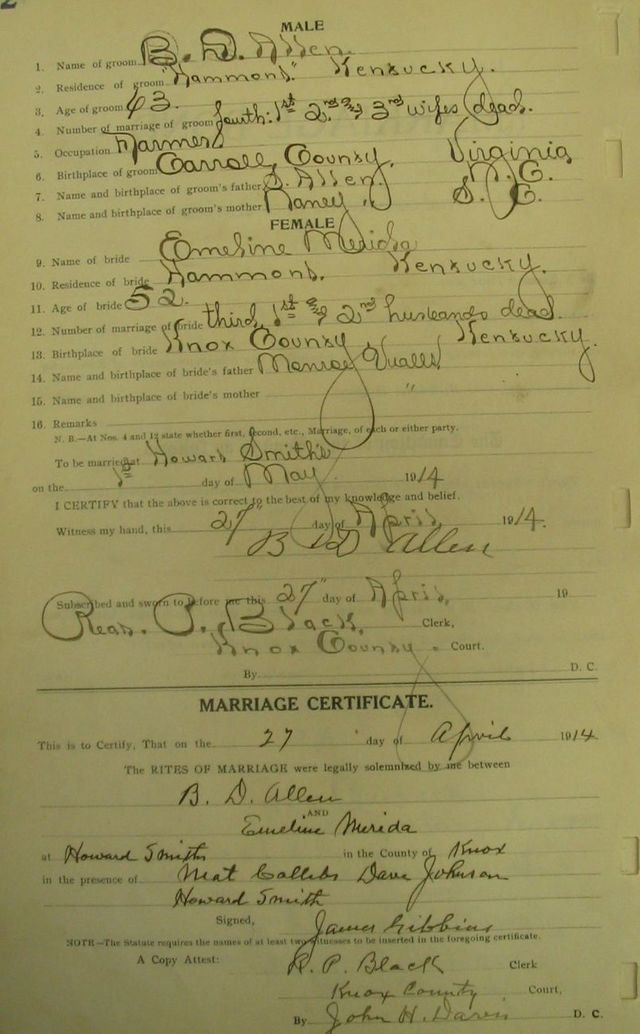 2
MALE
1. Name of groom B. D. Allen.
2. Residence of groom "Hammond." Kentucky.
3. Age of groom 63.
4. Number of marriage of groom fourth: 1st 2nd & 3rd wifes dead.
5. Occupation Farmer
6. Birthplace of groom Carroll County, Virginia
7. Name and birthplace of groom's father S. Allen,
8. Name and birthplace of groom's mother Nancy "
FEMALE
9. Name of bride Emeline Merida
10. Residence of bride Hammond. Kentucky.
11. Age of bride 52.
12. Number of marriage of bride third, 1st & 2nd husbands dead.
13. Birthplace of bride Knox County, Kentucky.
14. Name and birthplace of bride's father Monroe
15. Name and birthplace of bride's mother "
16. Remarks
N. B.—At Nos. 4 and 12 state whether first, second, etc., Marriage, of each or either party.
To be married at Howard Smith's
on the day of May 1914
I CERTIFY that the above is correct to the best of my knowledge and belief.
Witness my hand, this 27" day of April, 1914.
B D Allen
Subscribed and sworn to before me this 27" day of April, 19
Read. P. Black, Clerk,
Knox County. Court.
By D. C.
MARRIAGE CERTIFICATE.
This is to Certify, That on the 27 day of April 1914
The RITES OF MARRIAGE were legally solemnized by me between
B. D. Allen
AND
Emeline Merida
at Howard Smiths in the County of Knox
in the presence of Mat Callebs Dave Johnson
Howard Smith
Signed, James Gibbins
NOTE—The Statute requires the names of at least two witnesses to be inserted in the foregoing certificate.
A Copy Attest: R. P. Black Clerk
Knox County Court,
By John H. Davis D. C.